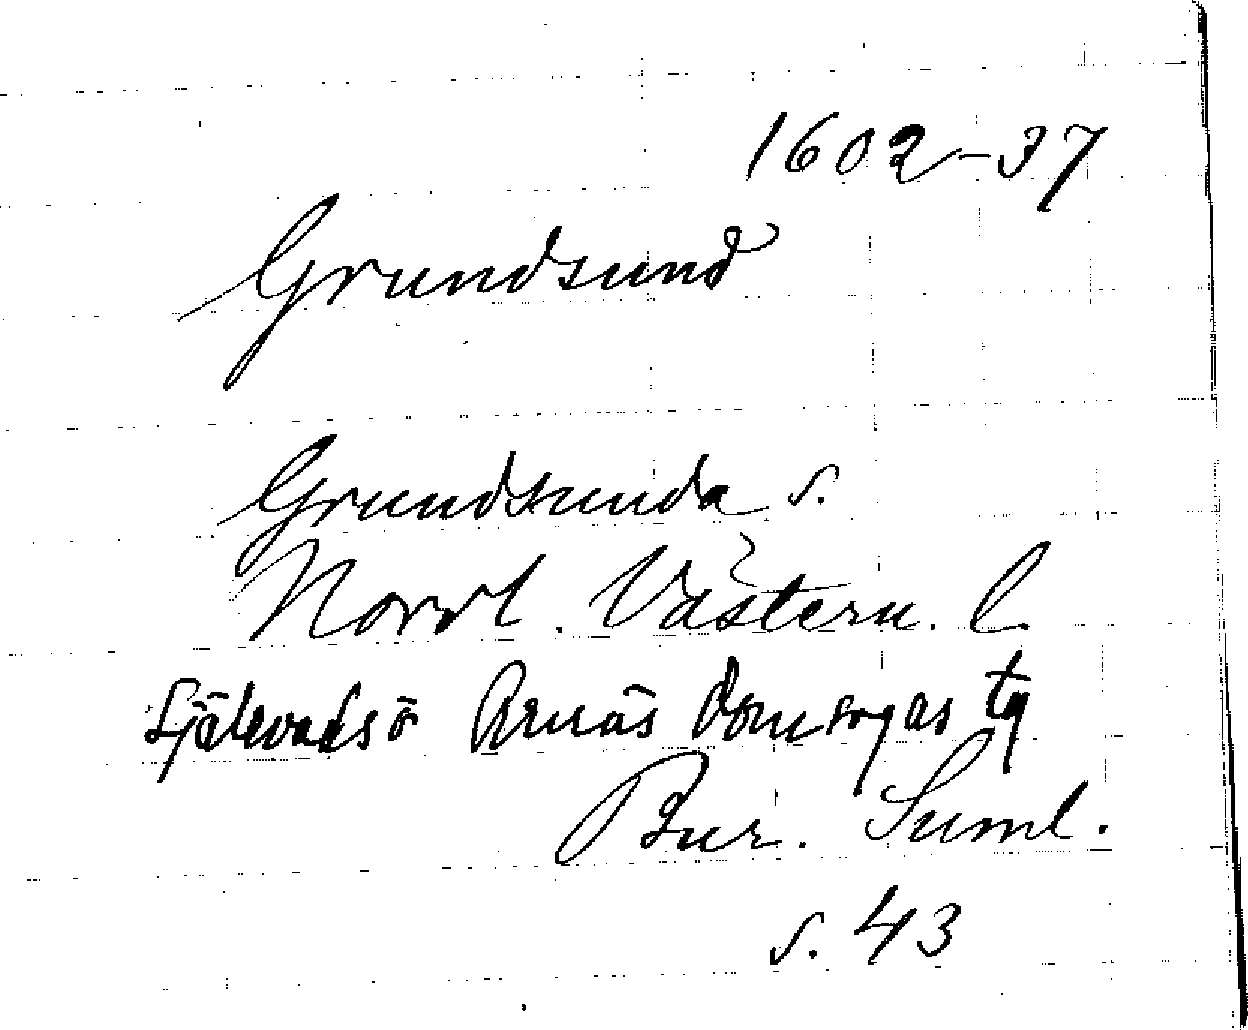 1602-37
Grundsund
Grundsunda s.
Norrl. Västern. l.
Själevads o Arnäs domsagas tg
Bur. Suml.
s. 43